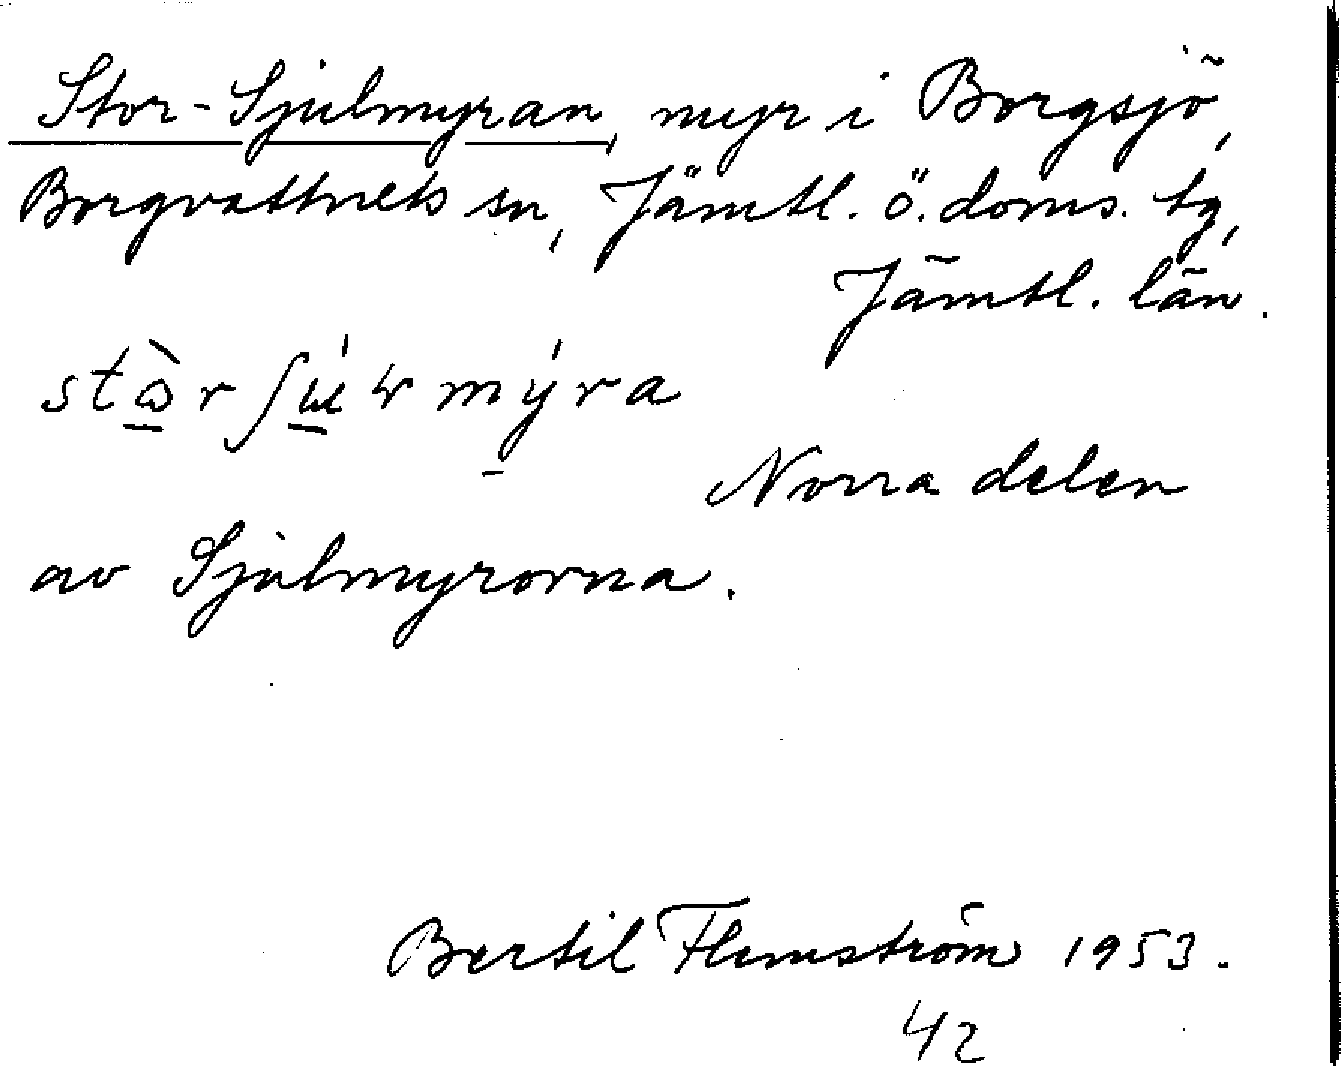 Stor-Sjulmyran, myr i Borgsjö,
Borgvattnets sn, Jämtl. ö. doms. tg,
Jämtl. län.
myra
Norra delen
av Sjulmyrorna.
Bertil Flemström 1953.
42